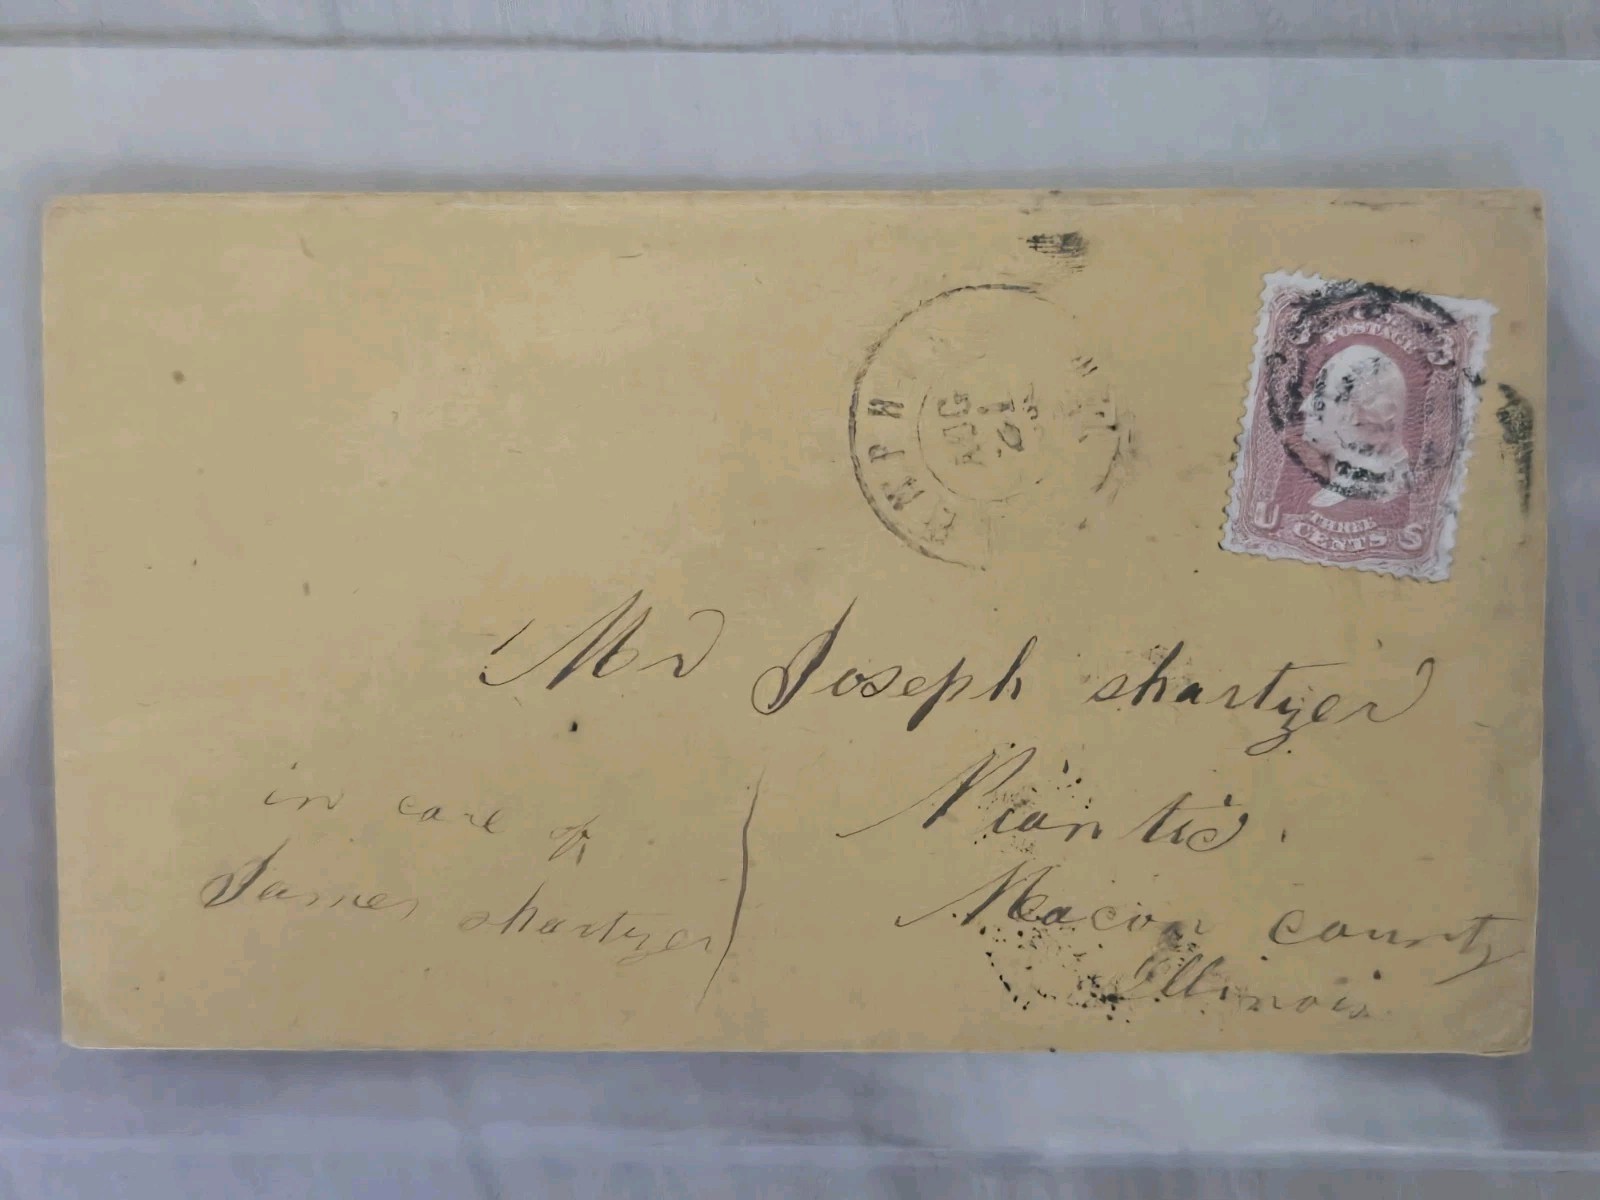 AUG
U.S. POSTAGE
THREE
CENTS
U S
Mr Joseph shartzer
Niantic.
Macon county
Illinois
in care of
James shartzer